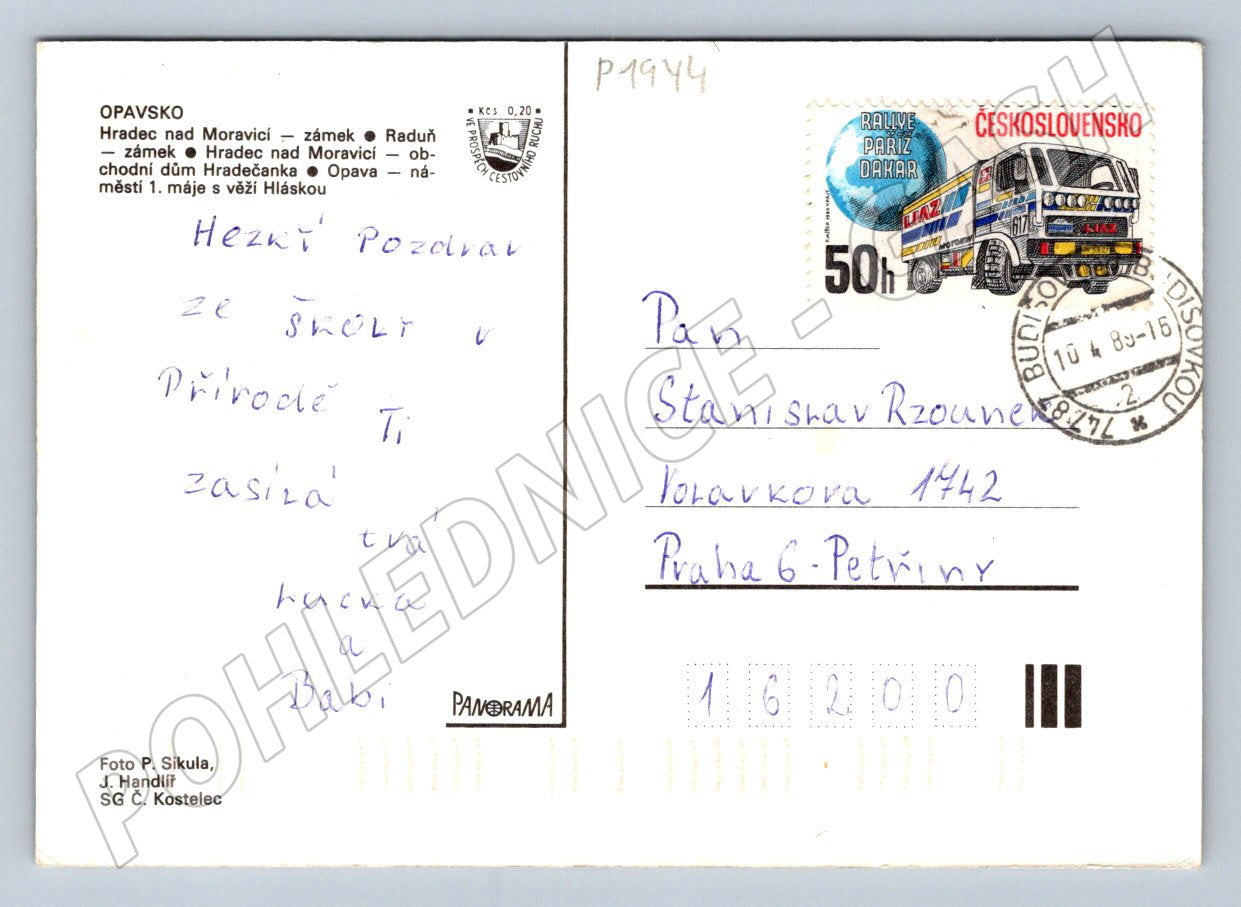 P1944
OPAVSKO
Hradec nad Moravicí – zámek ● Raduň
– zámek ● Hradec nad Moravicí – ob-
chodní dům Hradečanka ● Opava – ná-
městí 1. máje s věží Hláskou
Kčs 0,20
VE PROSPĚCH CESTOVNÍHO RUCHU
RALLYE
PAŘÍŽ
DAKAR
ČESKOSLOVENSKO
LIAZ
617
MOTOKOV
LIAZ
50h
BUDIŠOV BUDIŠOVKOU
10 4 89-16
2
747 87
Hezký Pozdrav
ze školy v
Přírodě Ti
zasílá
tvá
Lucka
a
Babi
Pan
Stanislav Rzounek
Volavkova 1742
Praha 6 - Petřiny
16200
PANORAMA
Foto P. Sikula,
J. Handlíř
SG Č. Kostelec
POHLEDNICE - CASH